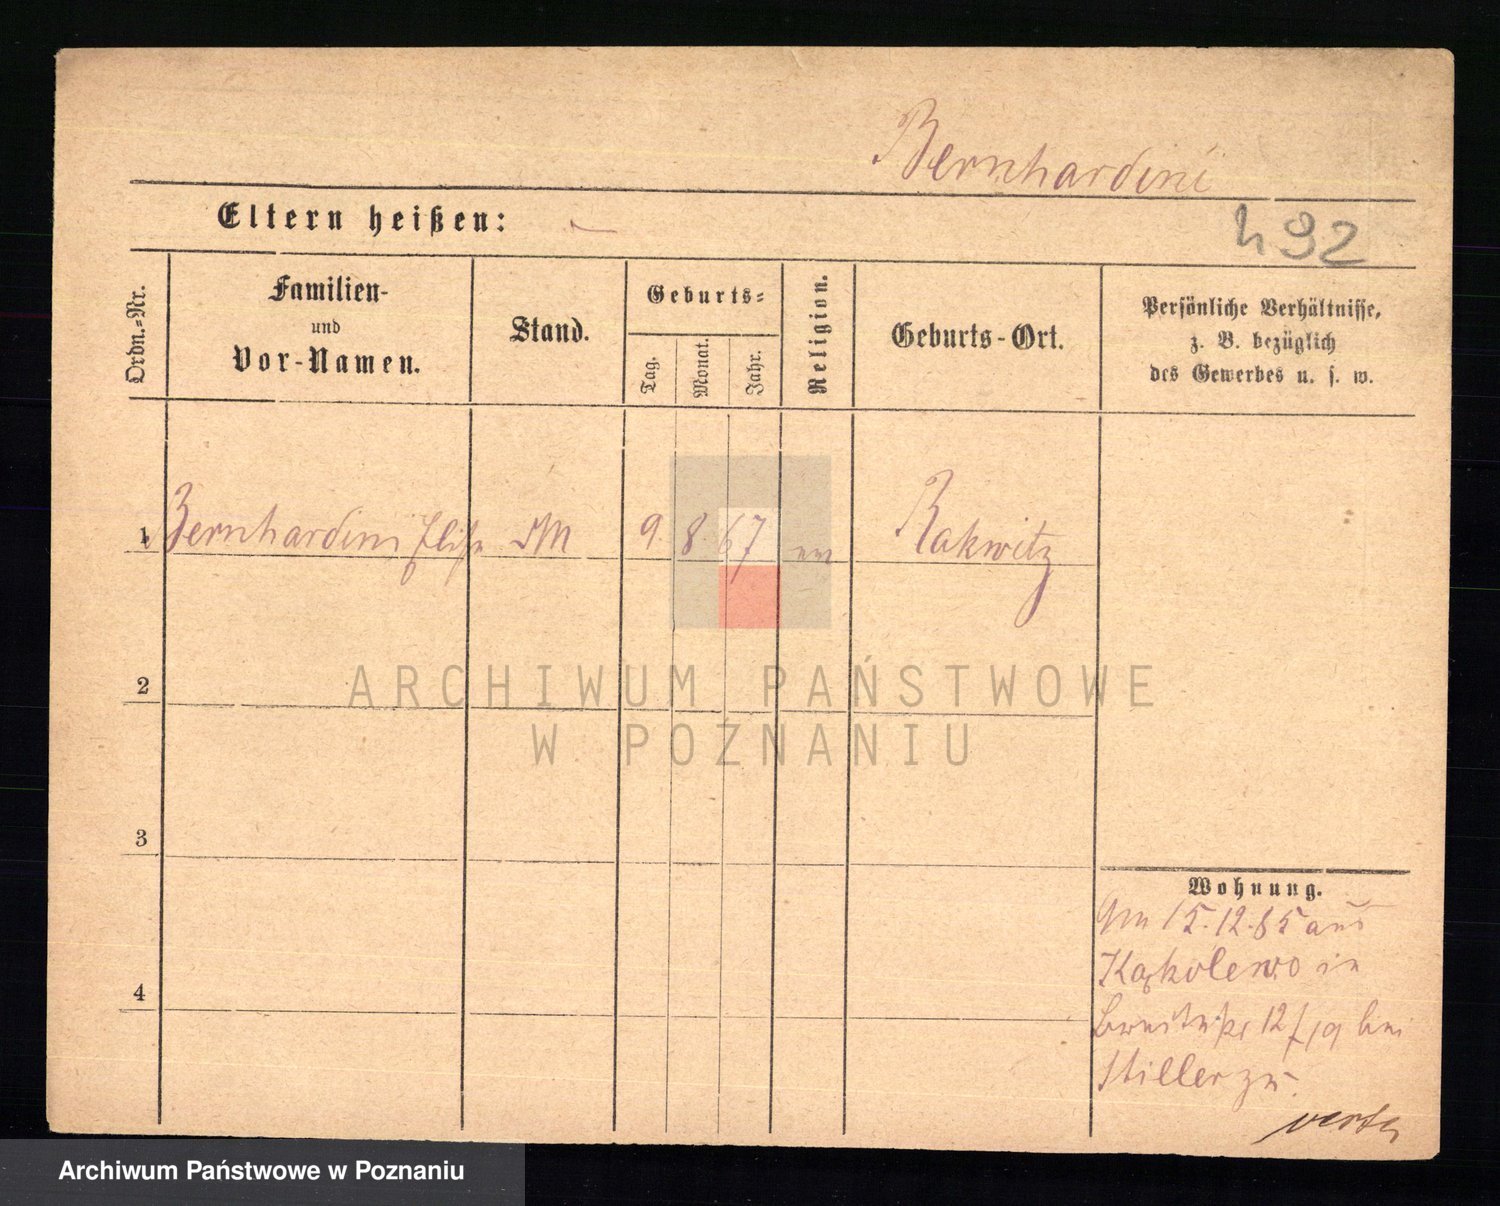 Bernhardini
Eltern heißen:
492
Ordn.-Nr.
Familien-
und
Vor-Namen.
Stand.
Geburts-
Tag.
Monat.
Jahr.
Religion.
Geburts-Ort.
Persönliche Verhältnisse,
z. B. bezüglich
des Gewerbes u. s. w.
1 Bernhardini Elise M 9. 8. 67 Rakwitz
2
ARCHIWUM PAŃSTWOWE
W POZNANIU
3
Wohnung.
Am 15.12.85 aus
Kąkolewo in
4
12 bei
Stiller zu.
verte
Archiwum Państwowe w Poznaniu